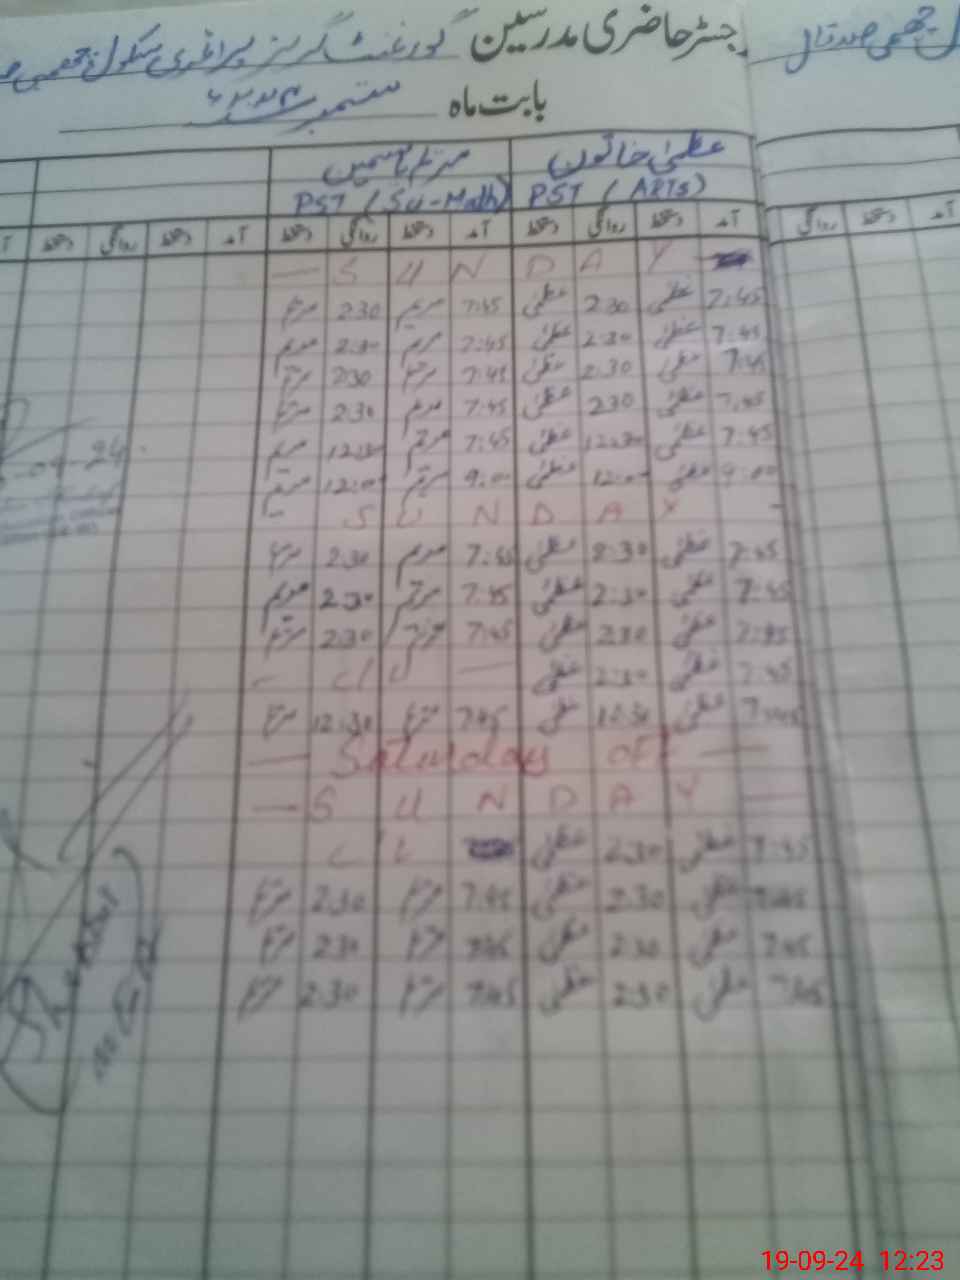 جسٹر حاضری مدرسین گورنمنٹ گرلز پرائمری سکول چھمی
بابت ماہ ستمبر 2024ء
عظمیٰ خاتون مریم یاسمین
PST (ARTS) PST (Sci-Math)
آمد دستخط روانگی دستخط آمد دستخط روانگی دستخط آمد دستخط روانگی دستخط
— S U N D A Y
7:45 عظمیٰ 2:30 عظمیٰ 7:45 مریم 2:30 مریم
7:45 عظمیٰ 2:30 عظمیٰ 7:45 مریم 2:30 مریم
7:45 عظمیٰ 2:30 عظمیٰ 7:45 مریم 2:30 مریم
7:45 عظمیٰ 2:30 عظمیٰ 7:45 مریم 2:30 مریم
7:45 عظمیٰ 12:30 عظمیٰ 7:45 مریم 12:30 مریم
9:00 عظمیٰ 12:00 عظمیٰ 9:00 مریم 12:00 مریم
— S U N D A Y —
7:45 عظمیٰ 2:30 عظمیٰ 7:45 مریم 2:30 مریم
7:45 عظمیٰ 2:30 عظمیٰ 7:45 مریم 2:30 مریم
7:45 عظمیٰ 2:30 عظمیٰ 7:45 مریم 2:30 مریم
7:45 عظمیٰ 2:30 عظمیٰ
7:45 عظمیٰ 12:30 عظمیٰ 7:45 مریم 12:30 مریم
— Saturday OFF —
— S U N D A Y —
7:45 عظمیٰ 2:30 عظمیٰ
7:45 عظمیٰ 2:30 عظمیٰ 7:45 مریم 2:30 مریم
7:45 عظمیٰ 2:30 عظمیٰ 7:45 مریم 2:30 مریم
7:45 عظمیٰ 2:30 عظمیٰ 7:45 مریم 2:30 مریم
19-09-24 12:23